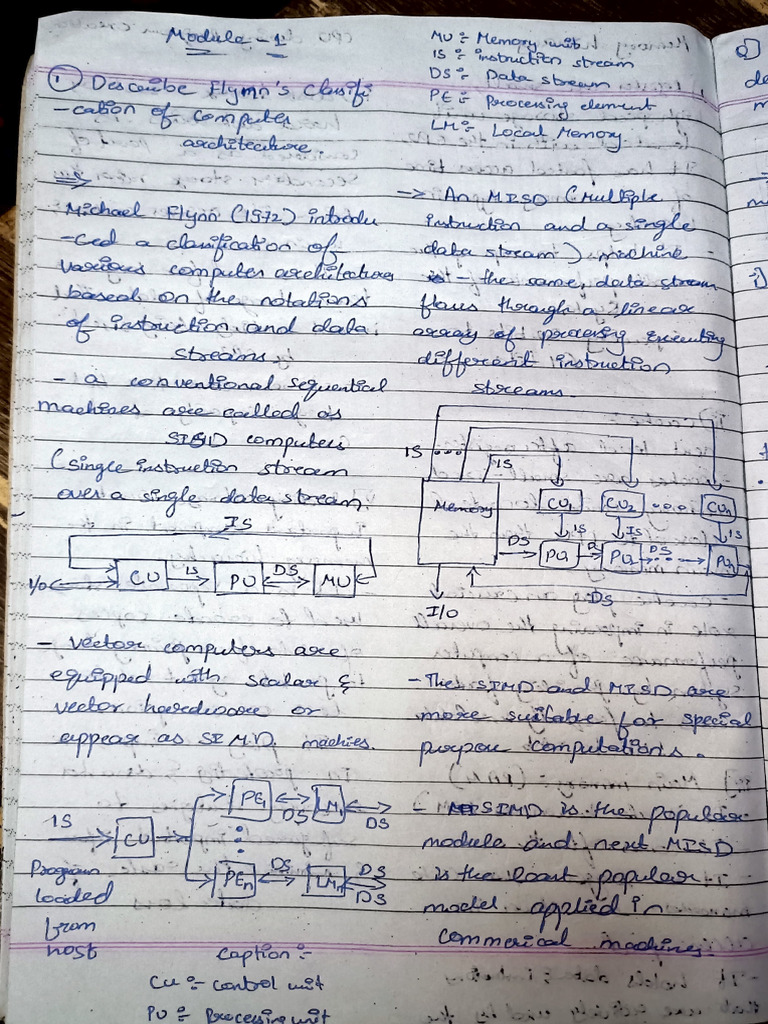 Module - 1
1 Describe Flynn's Classifi
-cation of computer
architecture.
Michael Flynn (1972) introdu
-ced a classification of
various computer architectures
based on the notations
of instruction and data
streams
- a conventional sequential
machines are called as
SISD computers
(single instruction stream
over a single data stream.
IS
I/O CU IS PU DS MU
- vector computers are
equipped with scalar &
vector hardware or
appear as SIMD machies.
PE1 DS LM1 DS
IS CU
PEn DS LMn DS
DS
Program
loaded
from
host
caption :-
CU :- control unit
PU :- Processing unit
MU :- Memory unit
IS :- instruction stream
DS :- Data stream
PE :- Processing element
LM :- Local Memory
-> An MISD (Multiple
instruction and a single
data stream) machine -
- the same data stream
flows through a linear
array of processing executing
different instruction
streams.
IS IS
Memory CU1 CU2 CUn
IS IS IS
DS PU1 PU2 DS PUn
DS
I/O
- The SIMD and MISD, are
more suitable for special
purpose computations.
- SIMD is the popular
module and next MISD
is the least popular
model applied in
commerical machines.